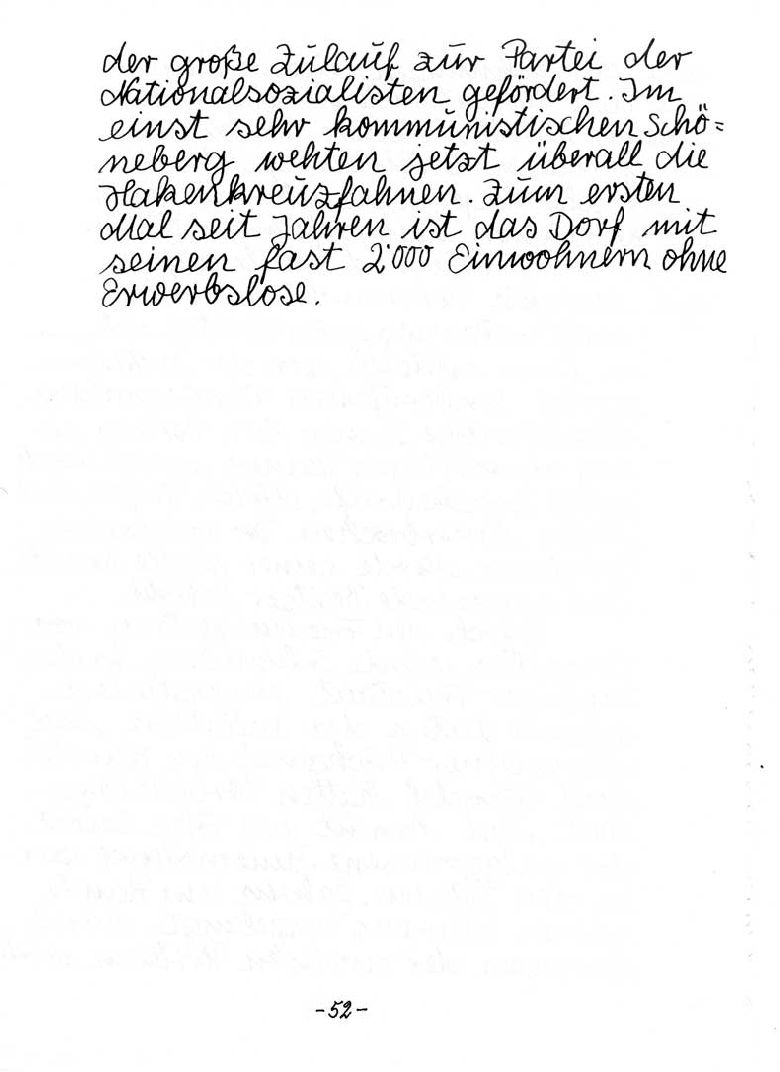 der große Zulauf zur Partei der
Nationalsozialisten gefördert. Im
einst sehr kommunistischen Schö=
neberg wehten jetzt überall die
Hakenkreuzfahnen. Zum ersten
Mal seit Jahren ist das Dorf mit
seinen fast 2'000 Einwohnern ohne
Erwerbslose.
-52-